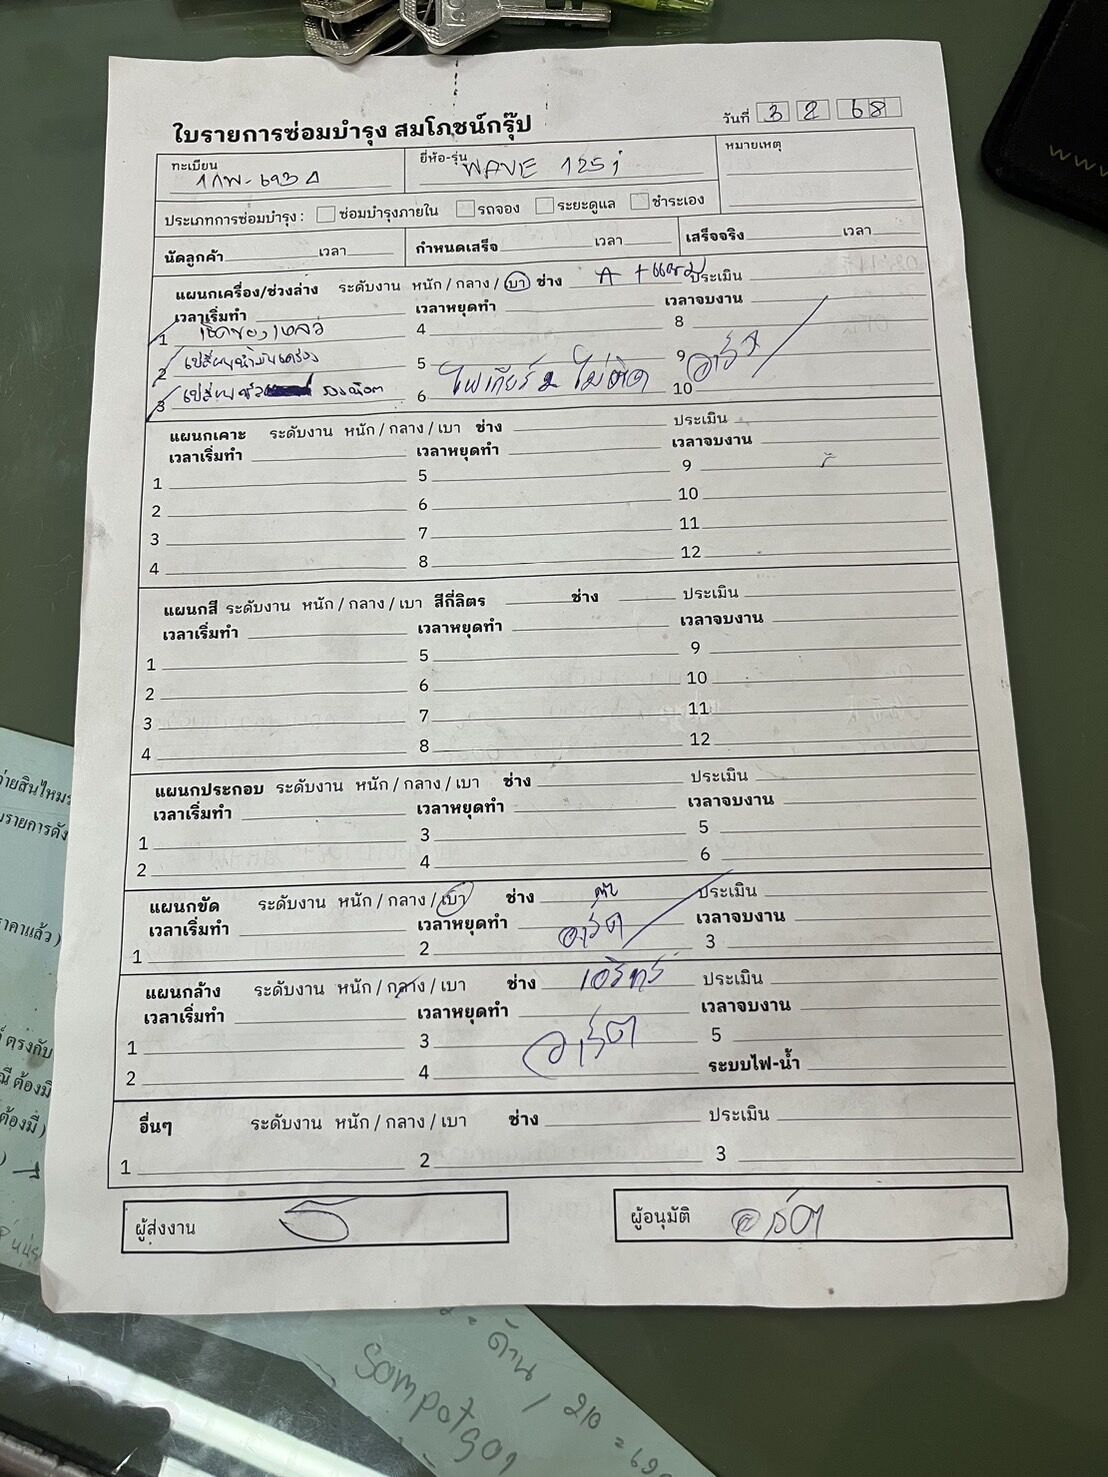 ใบรายการซ่อมบำรุง สมโภชน์กรุ๊ป
วันที่ 3 2 68
ทะเบียน
ยี่ห้อ-รุ่น WAVE 125 i
หมายเหตุ
ประเภทการซ่อมบำรุง : ซ่อมบำรุงภายใน รถจอง ระยะดูแล ชำระเอง
นัดลูกค้า เวลา กำหนดเสร็จ เวลา เสร็จจริง เวลา
แผนกเครื่อง/ช่วงล่าง ระดับงาน หนัก / กลาง / เบา ช่าง A ประเมิน
เวลาเริ่มทำ เวลาหยุดทำ เวลาจบงาน
1 เช็คของเหลว 4 8
2 เปลี่ยนน้ำมันเครื่อง 5 9
3 เปลี่ยน 6 ไฟเกียร์ 2 ไม่ติด 10
แผนกเคาะ ระดับงาน หนัก / กลาง / เบา ช่าง ประเมิน
เวลาเริ่มทำ เวลาหยุดทำ เวลาจบงาน
1 5 9
2 6 10
3 7 11
4 8 12
แผนกสี ระดับงาน หนัก / กลาง / เบา สีกี่ลิตร ช่าง ประเมิน
เวลาเริ่มทำ เวลาหยุดทำ เวลาจบงาน
1 5 9
2 6 10
3 7 11
4 8 12
แผนกประกอบ ระดับงาน หนัก / กลาง / เบา ช่าง ประเมิน
เวลาเริ่มทำ เวลาหยุดทำ เวลาจบงาน
1 3 5
2 4 6
แผนกขัด ระดับงาน หนัก / กลาง / เบา ช่าง ประเมิน
เวลาเริ่มทำ เวลาหยุดทำ เวลาจบงาน
1 2 อาร์ต 3
แผนกล้าง ระดับงาน หนัก / กลาง / เบา ช่าง ประเมิน
เวลาเริ่มทำ เวลาหยุดทำ เวลาจบงาน
1 3 อาร์ต 5
2 4 ระบบไฟ-น้ำ
อื่นๆ ระดับงาน หนัก / กลาง / เบา ช่าง ประเมิน
1 2 3
ผู้ส่งงาน
ผู้อนุมัติ อาร์ต
าคาแล้ว )
ตรงกับ
ต้องมี
ต้องมี )
ด้าน / 210 =